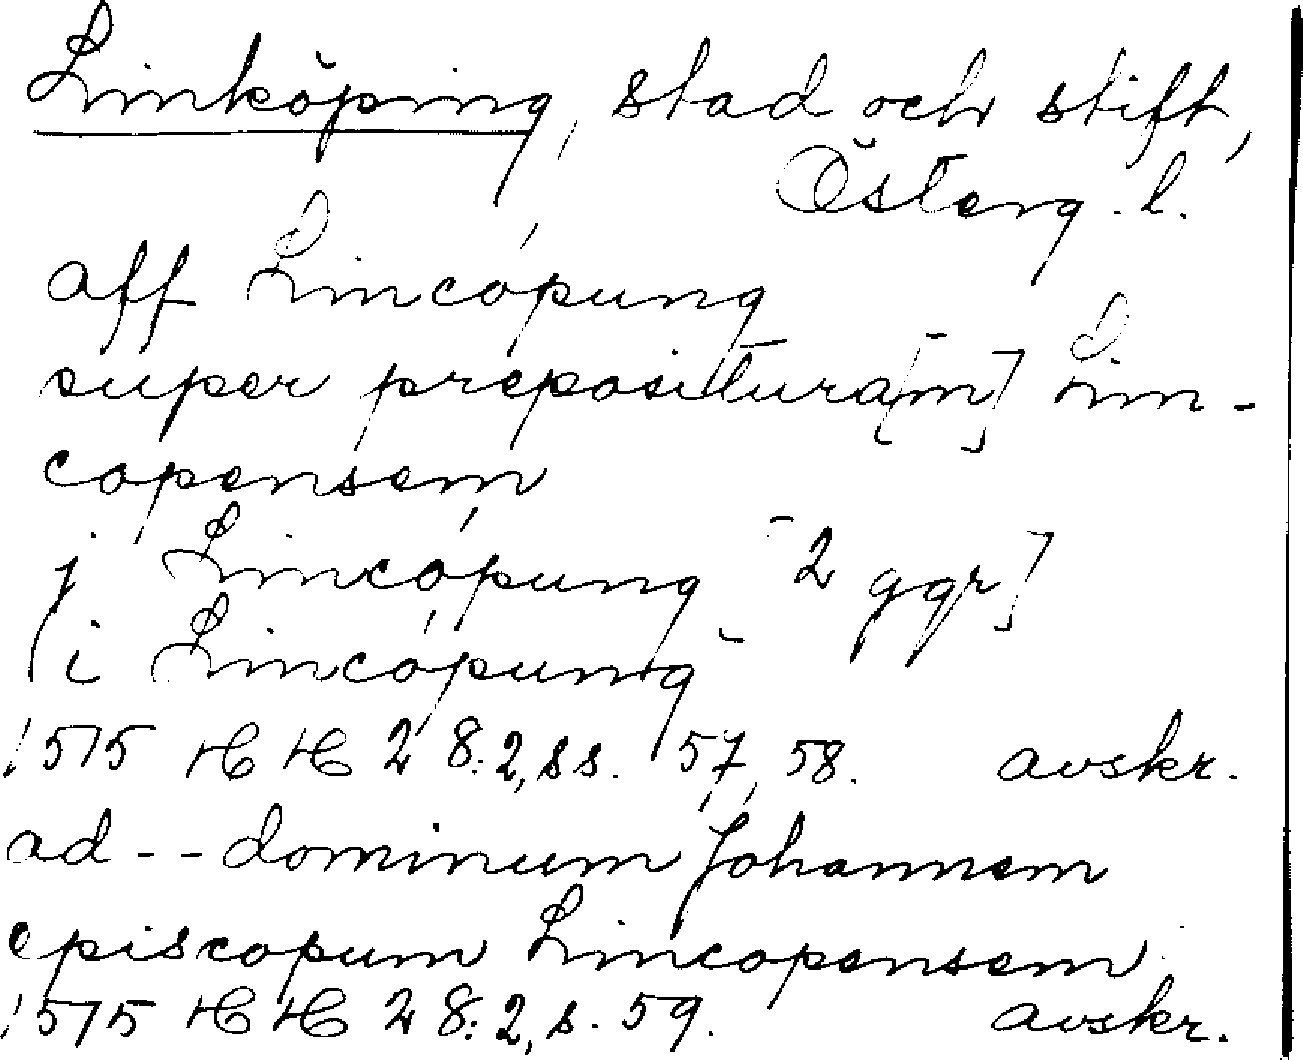 Linköping, stad och stift,
Österg. l.
aff Lincopung
super prepositura[m] Lin-
copensem
j Lincopung [2 ggr]
i Lincopung
1575 HH 2 8:2, ss. 57, 58. avskr.
ad -- dominum Johannem
episcopum Lincopensem
1575 HH 2 8:2, s. 59. avskr.